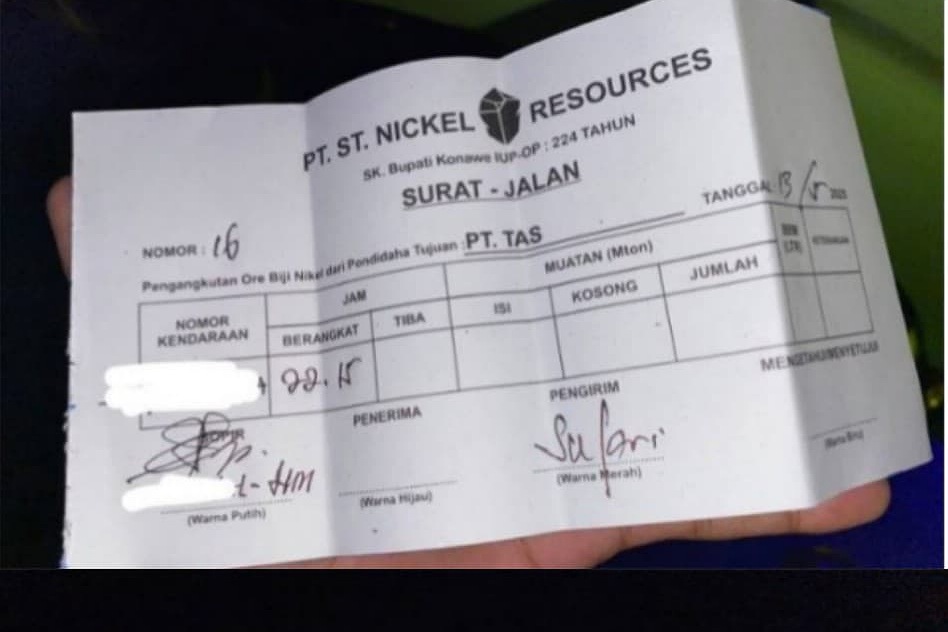 PT. ST. NICKEL RESOURCES
SK. Bupati Konawe IUP-OP : 224 TAHUN
SURAT - JALAN
TANGGAL 13/5 2025
NOMOR : 16
Pengangkutan Ore Biji Nikel dari Pondidaha Tujuan : PT. TAS
NOMOR KENDARAAN
JAM
BERANGKAT
TIBA
MUATAN (Mton)
ISI
KOSONG
JUMLAH
BBM (LTR)
KETERANGAN
22.15
SOPIR
PENERIMA
PENGIRIM
MENGETAHUI/MENYETUJUI
Safari
(Warna Putih)
(Warna Hijau)
(Warna Merah)
(Warna Biru)